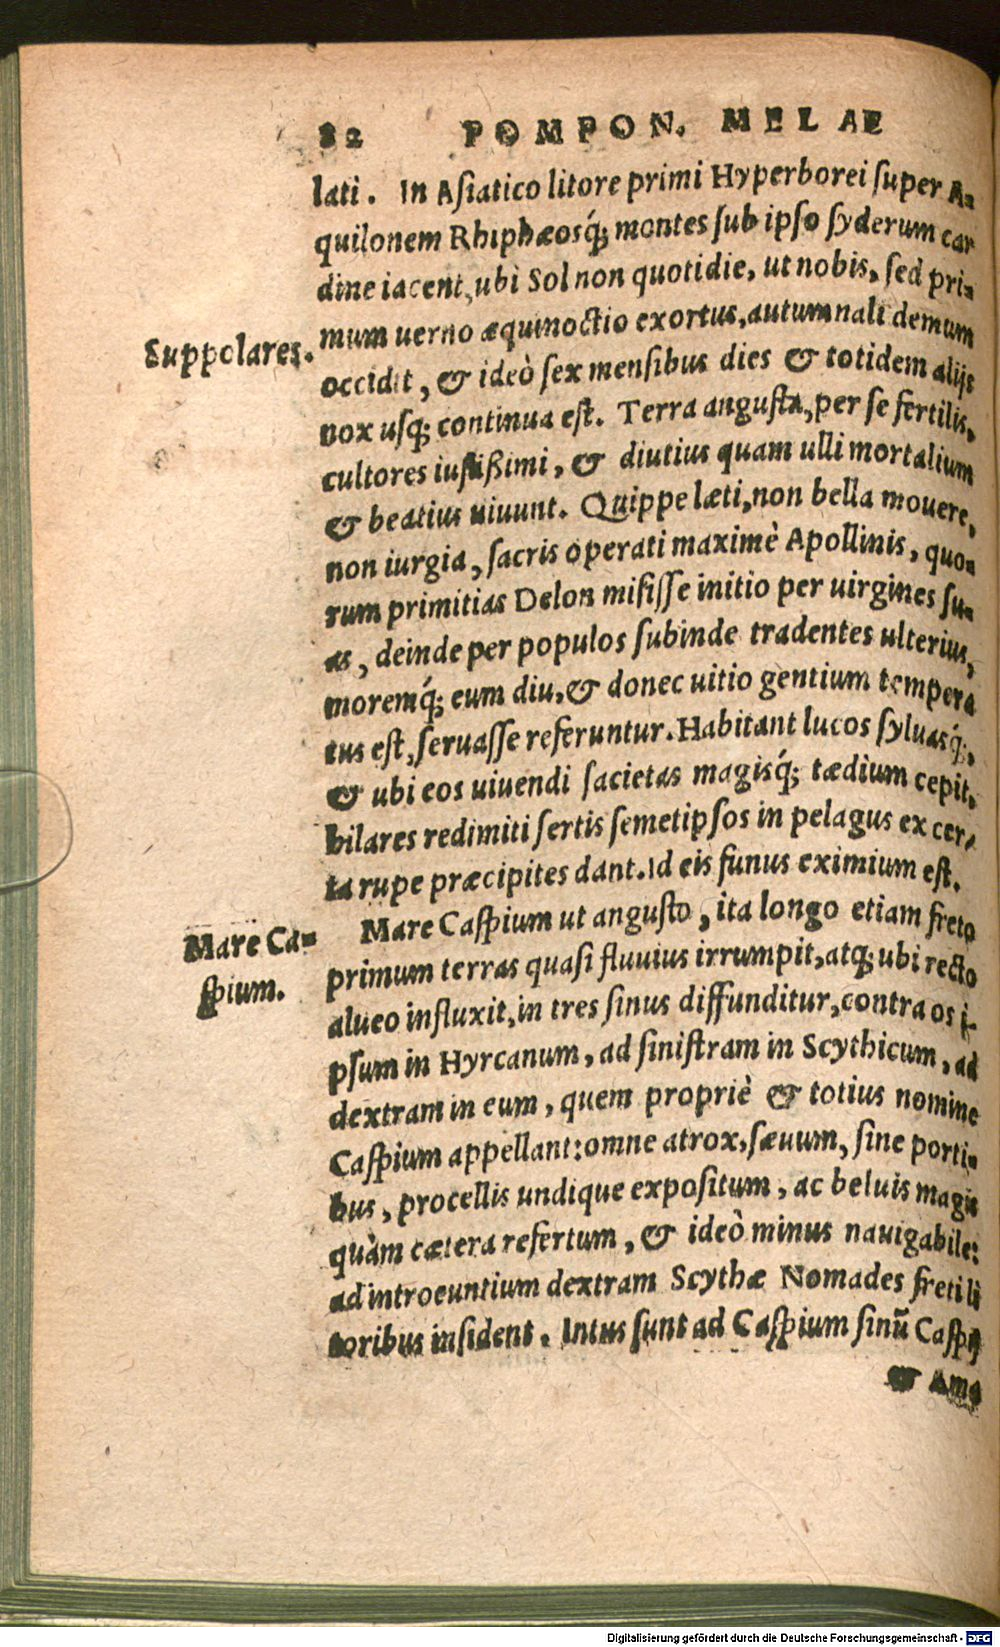 82 POMPON. MELAE
lati. In Asiatico litore primi Hyperborei super A-
quilonem Rhiphæosq́; montes sub ipso syderum car
dine iacent, ubi Sol non quotidie, ut nobis, sed pri-
mum uerno æquinoctio exortus, autumnali demum
Suppolares.
occidit, & ideò sex mensibus dies & totidem alijs
nox usq; continua est. Terra angusta, per se fertilis,
cultores iustißimi, & diutius quam ulli mortalium
& beatius uiuunt. Quippe læti, non bella mouere,
non iurgia, sacris operati maximè Apollinis, quo-
rum primitias Delon misisse initio per uirgines su-
as, deinde per populos subinde tradentes ulterius,
moremq́; eum diu, & donec uitio gentium tempera
tus est, seruasse referuntur. Habitant lucos syluasq́;,
& ubi eos uiuendi sacietas magisq́; tædium cepit,
hilares redimiti sertis semetipsos in pelagus ex cer-
ta rupe præcipites dant. Id eis funus eximium est.
Mare Ca-
spium.
Mare Caspium ut angusto, ita longo etiam freto
primum terras quasi fluuius irrumpit, atq; ubi recto
alueo influxit, in tres sinus diffunditur, contra os i-
psum in Hyrcanum, ad sinistram in Scythicum, ad
dextram in eum, quem propriè & totius nomine
Caspium appellant: omne atrox, sæuum, sine porti-
bus, procellis undique expositum, ac beluis magis
quàm cætera refertum, & ideò minus nauigabile:
ad introeuntium dextram Scythæ Nomades freti li
toribus insident. Intus sunt ad Caspium sinū Caspij
& Ama
Digitalisierung gefördert durch die Deutsche Forschungsgemeinschaft - DFG